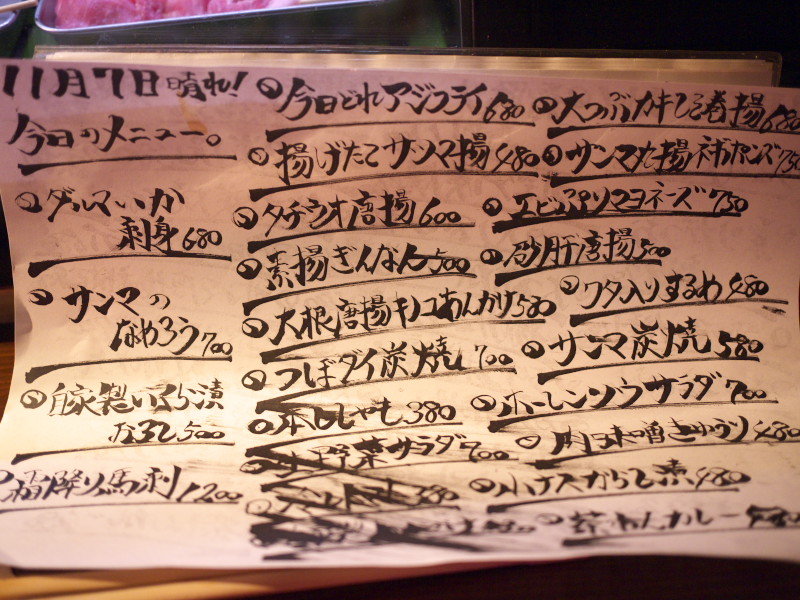 11月7日晴れ!
今日のメニュー。
ダルマいか
刺身680
サンマの
なめろう700
自家製いくら漬
おろし500
霜降り馬刺1200
今日どれアジフライ680
揚げたてサンマ揚480
タチウオ唐揚600
素揚ぎんなん500
大根唐揚キノコあんかけ580
つぼダイ炭焼700
本ししゃも380
野菜サラダ700
380
大つぶカキしそ巻揚680
サンマ丸揚ネギポンズ750
エビぷりマヨネーズ750
砂肝唐揚500
ワタ入りするめ480
サンマ炭焼580
ホーレンソウサラダ700
肉味噌きゅうり480
小ナスからし漬480
茶わんカレー